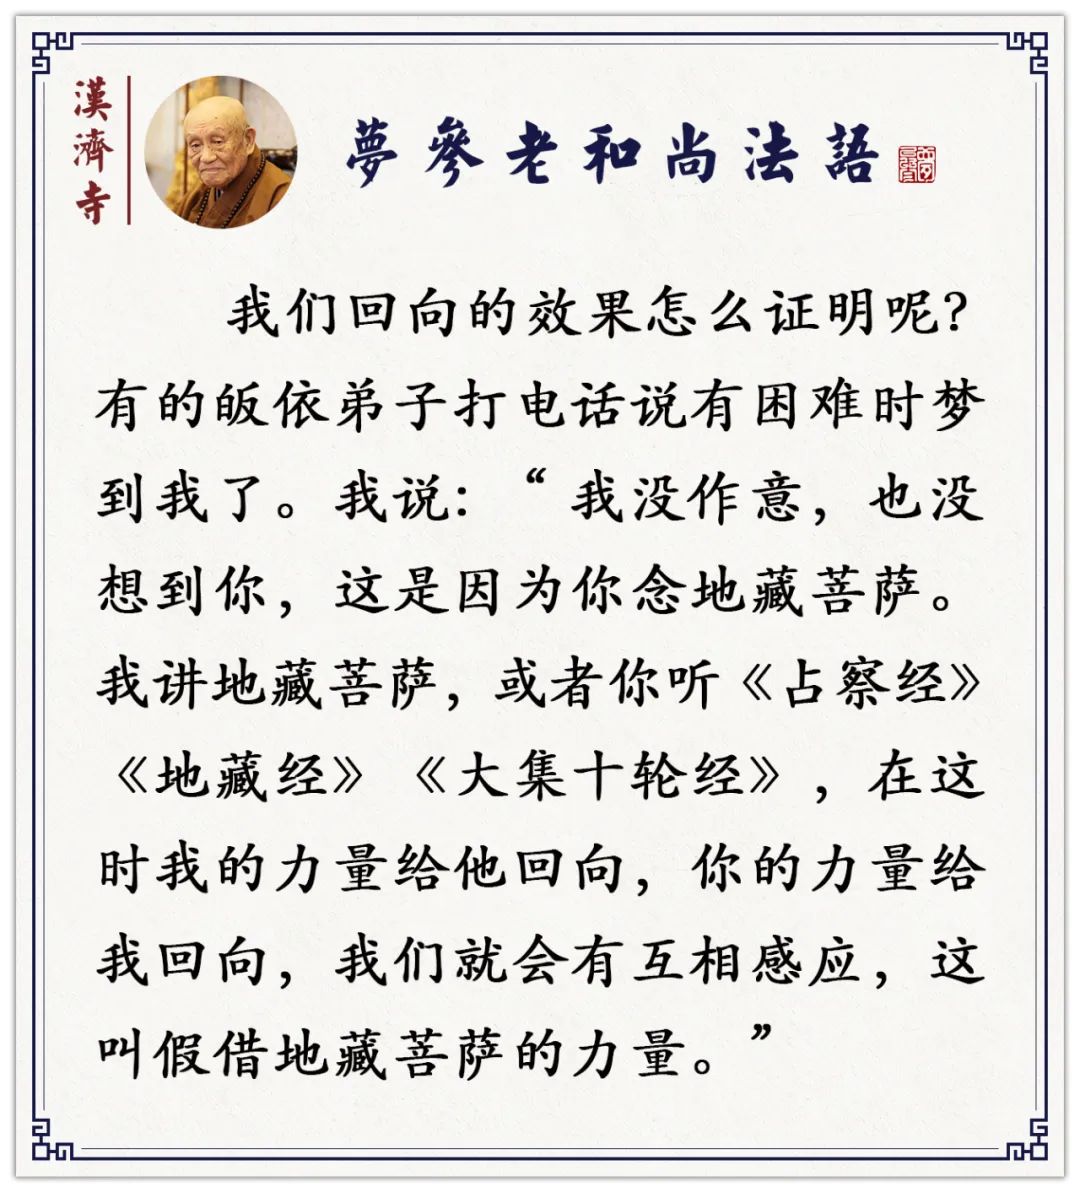 漢濟寺
夢參老和尚法語
我们回向的效果怎么证明呢？
有的皈依弟子打电话说有困难时梦
到我了。我说：“我没作意，也没
想到你，这是因为你念地藏菩萨。
我讲地藏菩萨，或者你听《占察经》
《地藏经》《大集十轮经》，在这
时我的力量给他回向，你的力量给
我回向，我们就会有互相感应，这
叫假借地藏菩萨的力量。”